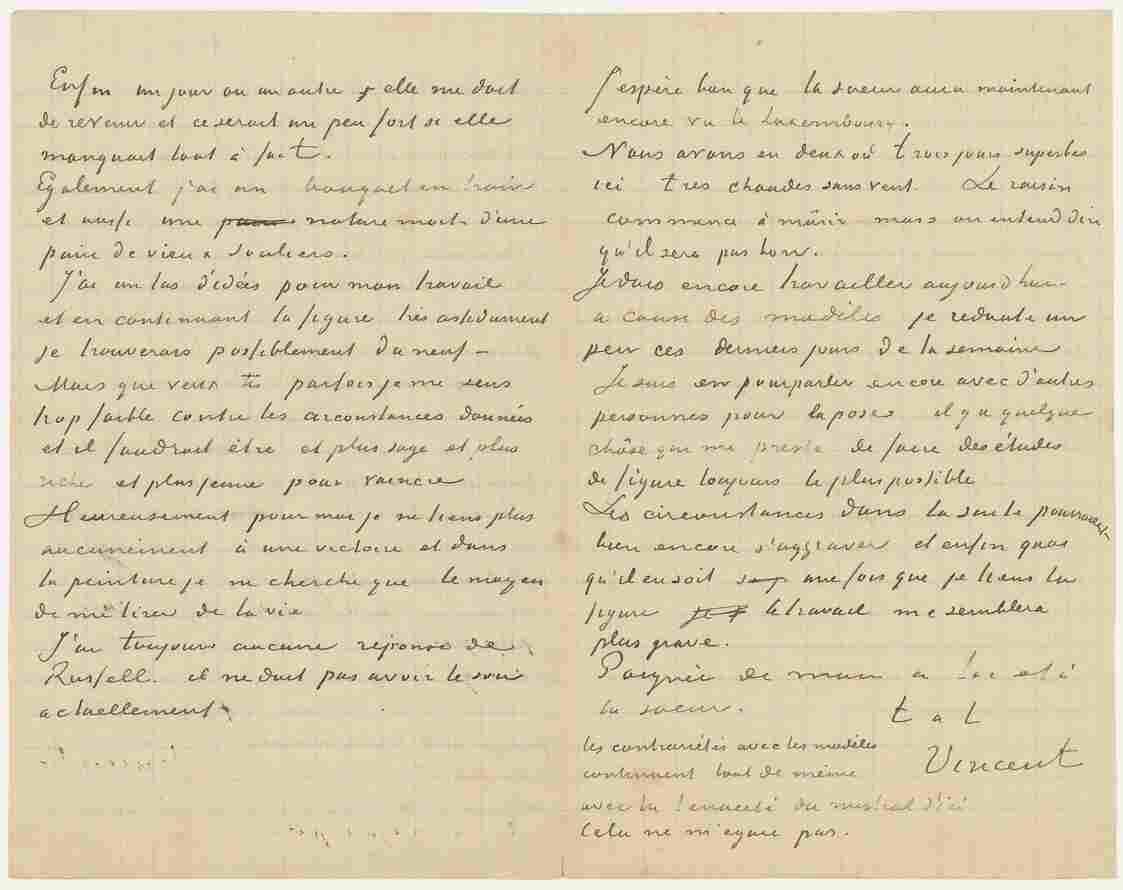 Enfin un jour ou un autre elle me doit
de revenir et ce serait un peu fort si elle
manquait tout à fait.
Egalement j'ai un bouquet en train
et aussi une nature morte d'une
paire de vieux souliers.
J'ai un tas d'idées pour mon travail
et en continuant la figure très assidument
je trouverais possiblement du neuf –
Mais que veux tu parfois je me sens
trop faible contre les circonstances données
et il faudrait être et plus sage et plus
riche et plus jeune pour vaincre
Heureusement pour moi je ne tiens plus
aucunement à une victoire et dans
la peinture je ne cherche que le moyen
de me tirer de la vie
J'ai toujours aucune réponse de
Russell. il ne doit pas avoir le sou
actuellement
J'espère bien que la soeur aura maintenant
encore vu le Luxembourg.
Nous avons eu deux où trois jours superbes
ici très chaudes sans vent. Le raisin
commence à mûrir mais on entend dire
qu'il sera pas bon.
Je dois encore travailler aujourd'hui –
a cause des modèles je redoute un
peu ces derniers jours de la semaine
Je suis en pourparler encore avec d'autres
personnes pour la pose il y a quelque
chôse qui me presse de faire des études
de figure toujours le plus possible
Les circonstances dans la suite pourraient
bien encore s'aggraver et enfin quoi
qu'il en soit une fois que je tiens la
figure le travail me semblera
plus grave.
Poignée de main a toi et à
la soeur.
t a t
Vincent
les contrariétés avec les modèles
continuent tout de même
avec la tenacité du mistral d'ici
Cela ne m'égare pas.